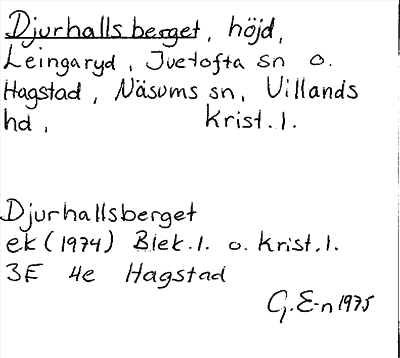 Djurhallsberget, höjd,
Leingaryd, Ivetofta sn o.
Hagstad, Näsums sn, Villands
hd, Krist.l.
Djurhallsberget
ek (1974) Blek.l. o. Krist.l.
3E 4e Hagstad
G. E-n 1975